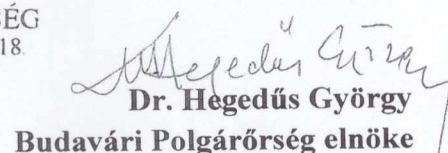 SÉG
18.
Hegedűs György
Dr. Hegedűs György
Budavári Polgárőrség elnöke